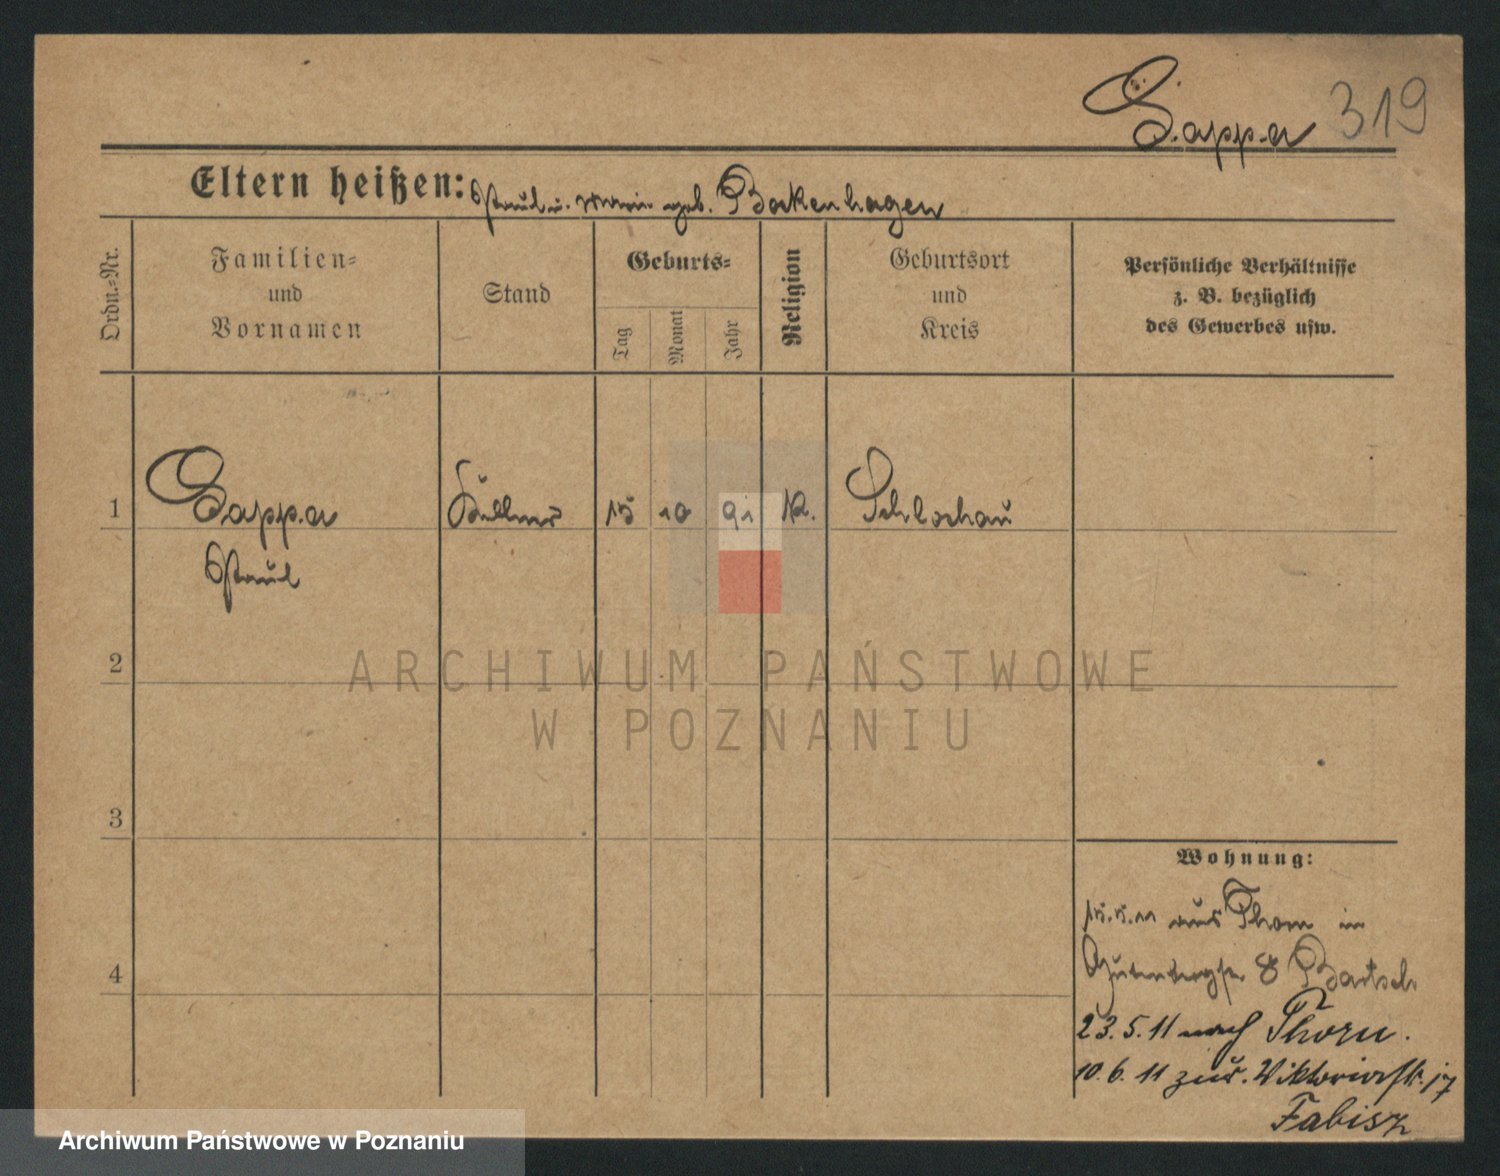 Gappa 319
Eltern heißen: Paul u. Marie geb. Bockenhagen
Ordn.-Nr.
Familien-
und
Vornamen
Stand
Geburts-
Tag
Monat
Jahr
Religion
Geburtsort
und
Kreis
Persönliche Verhältnisse
z. B. bezüglich
des Gewerbes usw.
1 Gappa Kellner 15 10 91 K. Schlochau
Paul
2
3
4
ARCHIWUM PAŃSTWOWE
W POZNANIU
Wohnung:
15.5.11 aus Thorn in
Gutenbergstr. 8 Bartsch
23.5.11 nach Thorn.
10.6.11 zur. Viktoriastr. 17
Fabisz
Archiwum Państwowe w Poznaniu